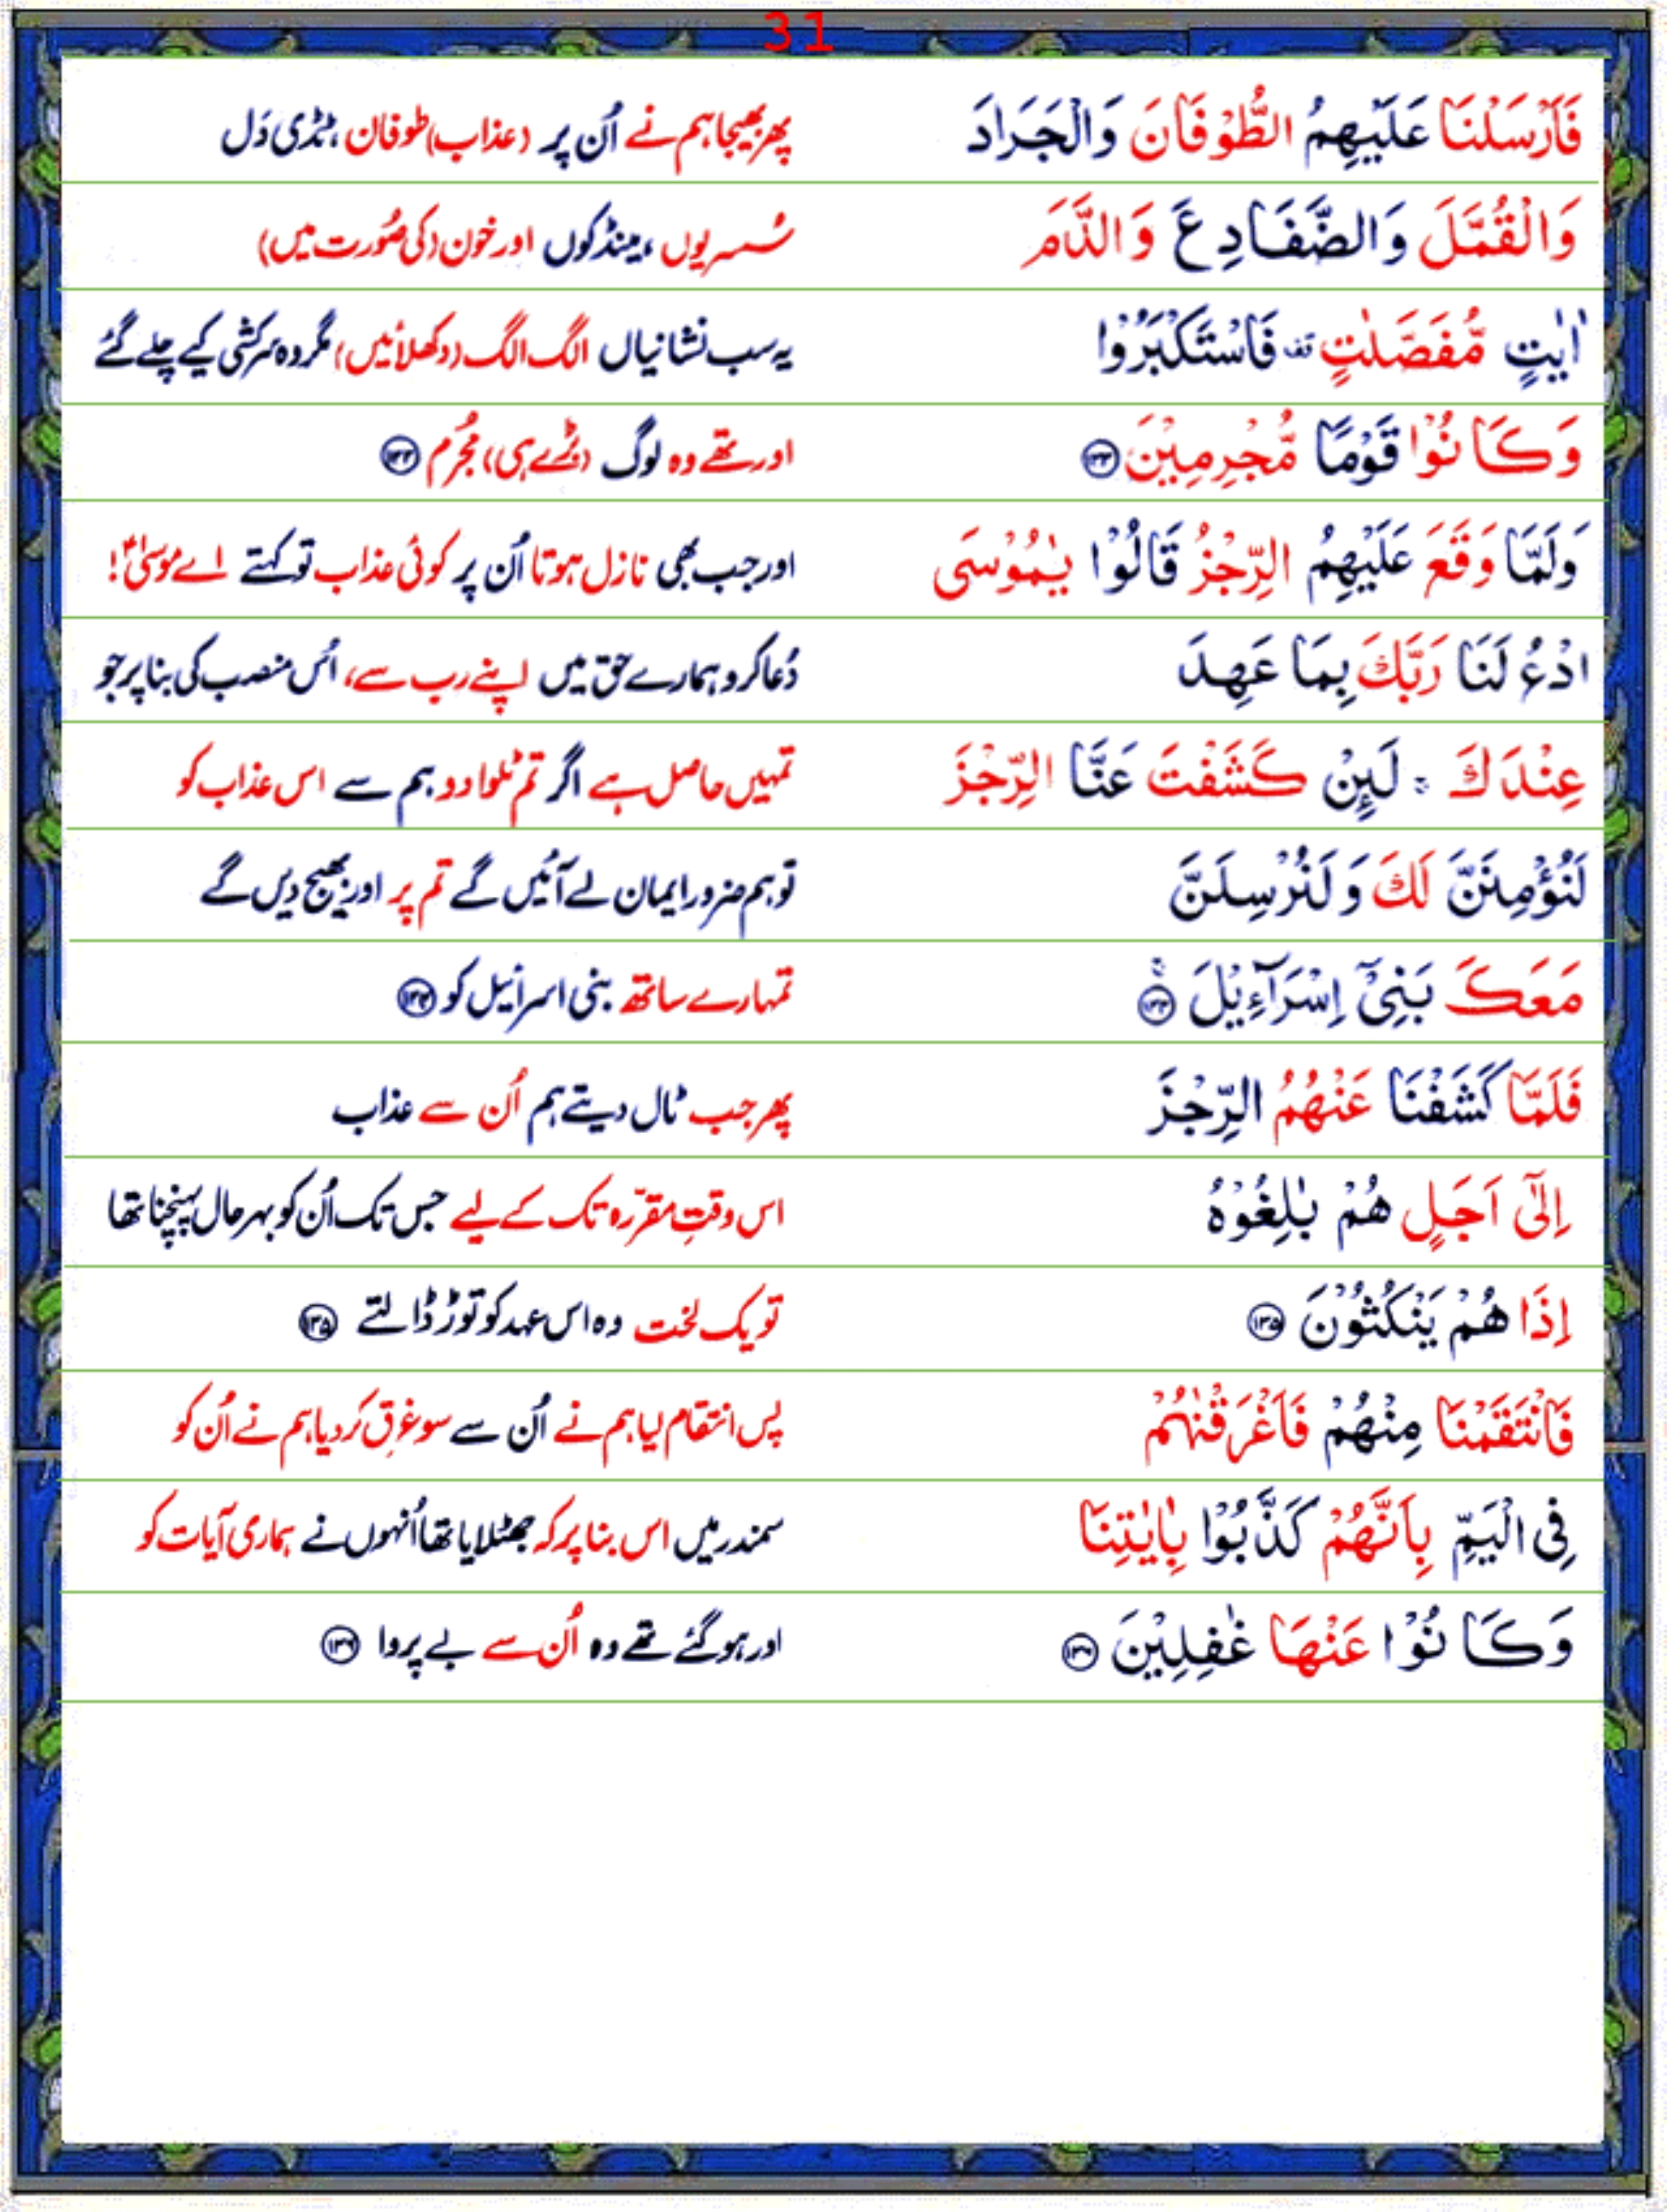 31
فَاَرْسَلْنَا عَلَيْهِمُ الطُّوْفَانَ وَالْجَرَادَ پھر بھیجا ہم نے اُن پر (عذاب) طوفان، ٹڈی دَل
وَالْقُمَّلَ وَالضَّفَادِعَ وَالدَّمَ سُسریوں، مینڈکوں اور خون (کی صُورت میں)
اٰيٰتٍ مُّفَصَّلٰتٍ قف فَاسْتَكْبَرُوْا یہ سب نشانیاں الگ الگ (دکھلائیں) مگر وہ سرکشی کیے چلے گئے
وَكَانُوْا قَوْمًا مُّجْرِمِيْنَ ۱۳۳ اور تھے وہ لوگ (بڑے ہی) مُجرم ۱۳۳
وَلَمَّا وَقَعَ عَلَيْهِمُ الرِّجْزُ قَالُوْا يٰمُوْسَى اور جب بھی نازل ہوتا اُن پر کوئی عذاب تو کہتے اے موسیٰؑ!
ادْعُ لَنَا رَبَّكَ بِمَا عَهِدَ دُعا کرو ہمارے حق میں اپنے رب سے، اُس منصب کی بنا پر جو
عِنْدَكَ ۚ لَئِنْ كَشَفْتَ عَنَّا الرِّجْزَ تمہیں حاصل ہے اگر تم ٹلوا دو ہم سے اس عذاب کو
لَنُؤْمِنَنَّ لَكَ وَلَنُرْسِلَنَّ تو ہم ضرور ایمان لے آئیں گے تم پر اور بھیج دیں گے
مَعَكَ بَنِيْٓ اِسْرَآءِيْلَ ۚ ۱۳۴ تمہارے ساتھ بنی اسرائیل کو ۱۳۴
فَلَمَّا كَشَفْنَا عَنْهُمُ الرِّجْزَ پھر جب ٹال دیتے ہم اُن سے عذاب
اِلٰٓى اَجَلٍ هُمْ بٰلِغُوْهُ اس وقتِ مقرّرہ تک کے لیے جس تک اُن کو بہرحال پہنچنا تھا
اِذَا هُمْ يَنْكُثُوْنَ ۱۳۵ تو یک لخت وہ اس عہد کو توڑ ڈالتے ۱۳۵
فَانْتَقَمْنَا مِنْهُمْ فَاَغْرَقْنٰهُمْ پس انتقام لیا ہم نے اُن سے سو غرق کر دیا ہم نے اُن کو
فِى الْيَمِّ بِاَنَّهُمْ كَذَّبُوْا بِاٰيٰتِنَا سمندر میں اس بنا پر کہ جھٹلایا تھا اُنہوں نے ہماری آیات کو
وَكَانُوْا عَنْهَا غٰفِلِيْنَ ۱۳۶ اور ہو گئے تھے وہ اُن سے بے پروا ۱۳۶